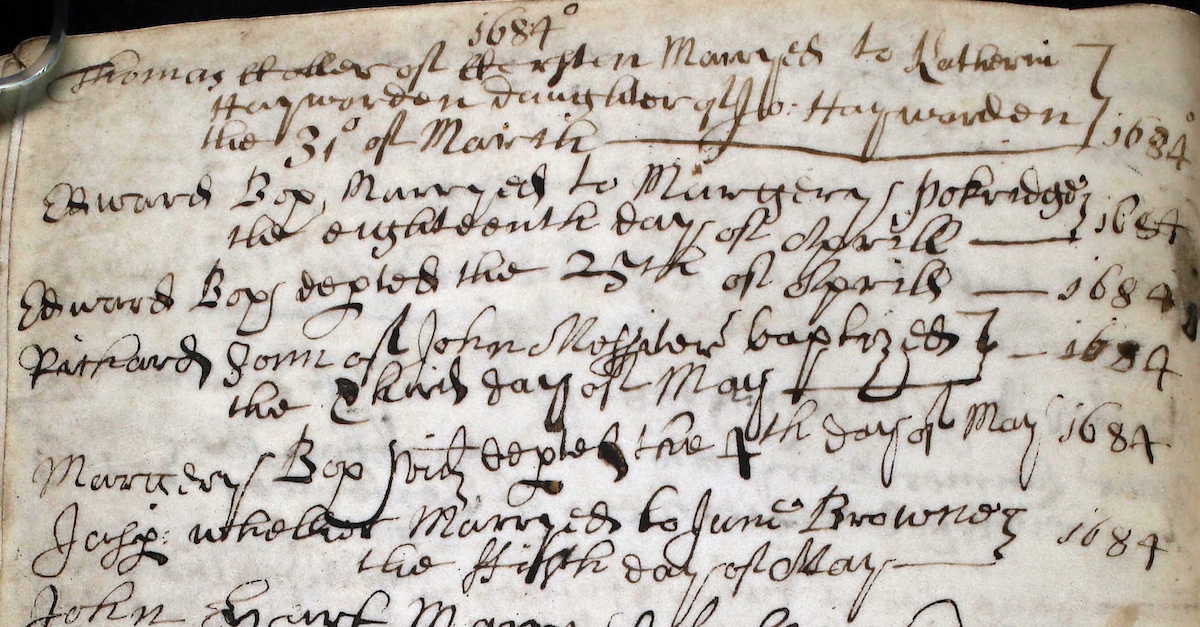 1684°
Thomas of Marryed to Katherin
Haywarden daughter of Jo: Haywarden
the 31° of March 1684°
Edward Bop, Marryed to Margery Pokridge
the eighteenth day of Aprill 1684
Edward Bop depted the 25th of Aprill 1684
Richard Sonn of John baptized
the Third day of May 1684
Margery Bop depted the 4th day of May 1684
Marryed to June Browne 1684
the fifth day of May
John